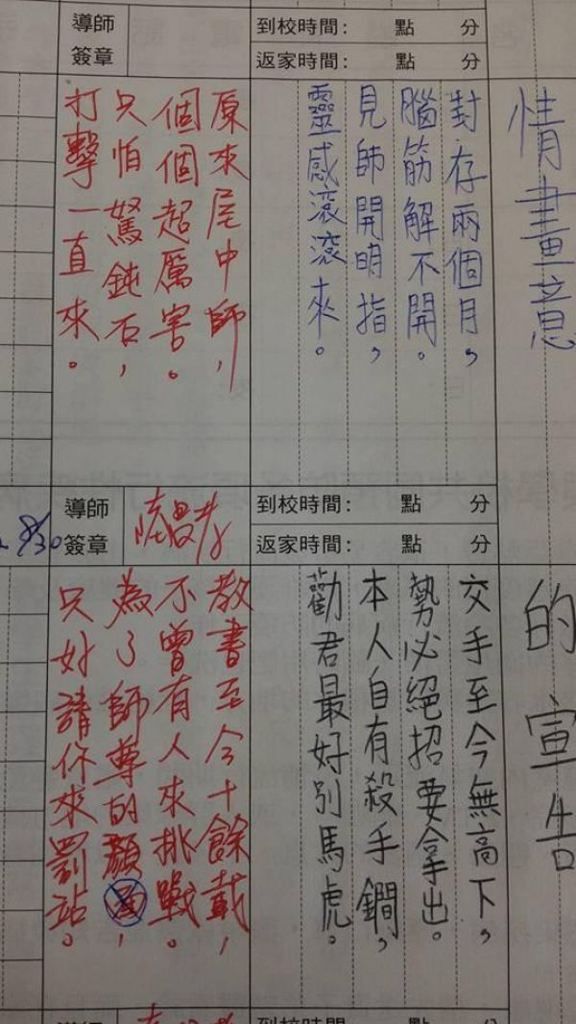 導師
簽章
到校時間: 點 分
返家時間: 點 分
情畫意
對存兩個月，
腦筋解不開。
見師開明指，
靈感滾滾來。
原來尾中師，
個個超厲害。
只怕駑鈍石，
打擊一直來。
8/30
導師
簽章
到校時間: 點 分
返家時間: 點 分
的宣告
交手至今無高下，
勢必絕招要拿出。
本人自有殺手鐧，
勸君最好別馬虎。
教書至今十餘載，
不曾有人來挑戰。
為了師尊的顏面，
只好請你來罰站。
導師
到校時間: 點 分